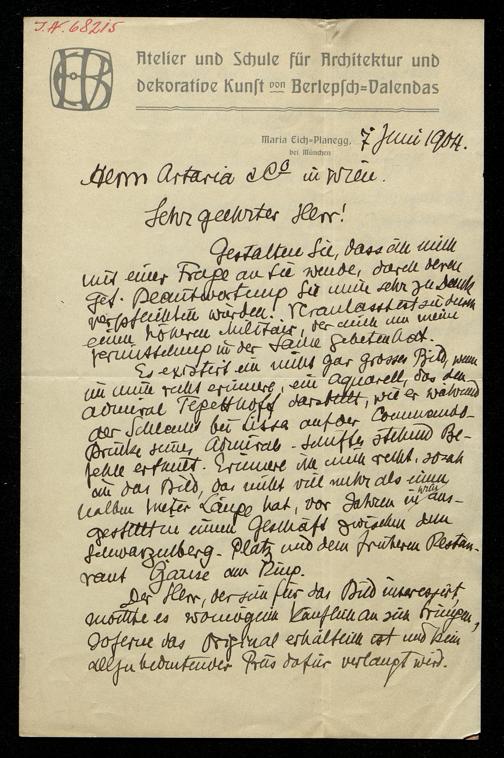 J.N. 68215
Atelier und Schule für Architektur und
dekorative Kunst von Berlepsch=Valendas
Maria Eich=Planegg, 7 Juni 1904.
bei München
Herrn Artaria & Co in Wien.
Sehr geehrter Herr!
Gestatten Sie, dass ich mich
mit einer Frage an Sie wende, durch deren
gef. Beantwortung Sie mich sehr zu Dank
verpflichten würden. Veranlasst ist durch
einen höheren Militair, der mich um meine
Vermittelung in der Sache gebeten hat.
Es existirt ein nicht gar grosses Bild, wenn
ich mich recht erinnere, ein Aquarell, das den
Admiral Tegetthoff darstellt, wie er während
der Schlacht bei Lissa auf der Commando-
Brücke seines Admirals-Schiffes stehend Be-
fehle erteilt. Erinnere ich mich recht, so sah
ich das Bild, das nicht viel mehr als einen
halben Meter Länge hat, vor Jahren in Wien aus-
gestellt in einem Geschäft zwischen dem
Schwarzenberg-Platz und dem früheren Restau-
rant Gause am Ring.
Der Herr, der sich für das Bild interessirt,
möchte es womöglich käuflich an sich bringen,
soferne das Original erhältlich ist und kein
allzu bedeutender Preis dafür verlangt wird.